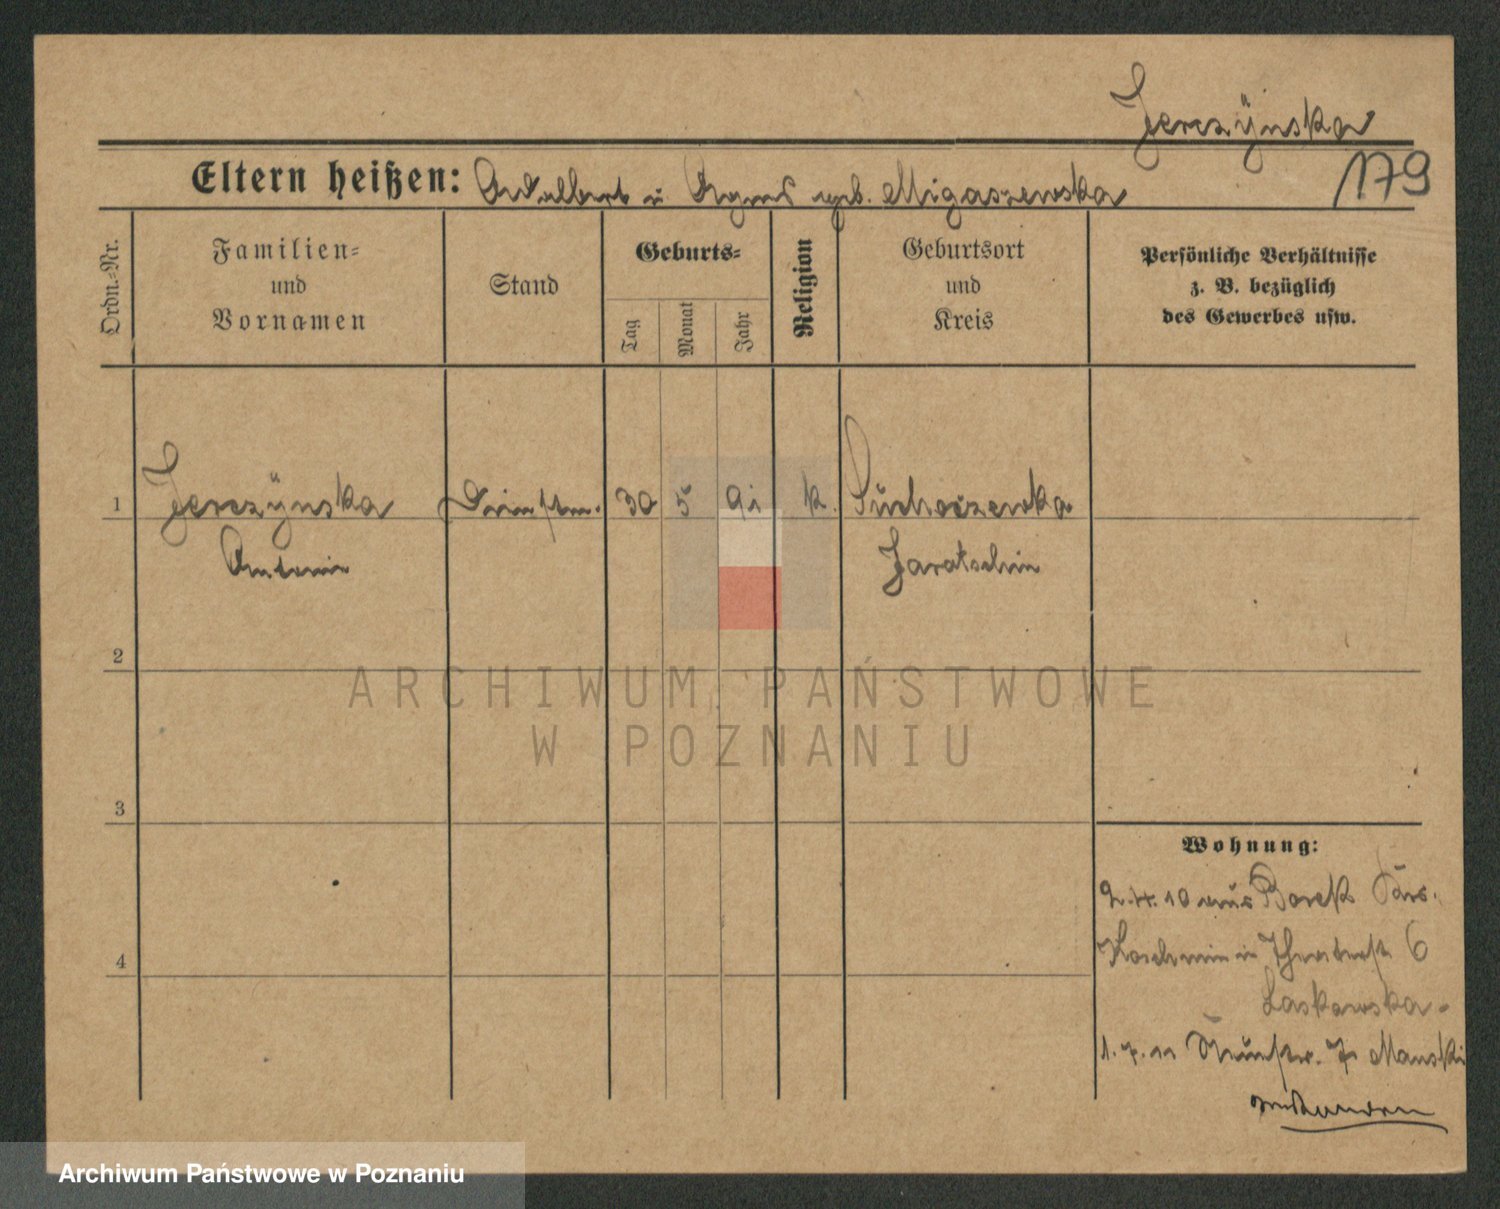 Jerczÿnska
179
Eltern heißen: Adalbert u Agnes geb. Migaszewska
Ordn.-Nr.
Familien-
und
Vornamen
Stand
Geburts-
Tag
Monat
Jahr
Religion
Geburtsort
und
Kreis
Persönliche Verhältnisse
z. B. bezüglich
des Gewerbes usw.
1 Jerczÿnska 30 5 91 k.
Antonie Jaratschin
2
3
4
Wohnung:
2.4.10 aus Borek
6
Laskowska
1.7.11 7 Manski
ARCHIWUM PAŃSTWOWE
W POZNANIU
Archiwum Państwowe w Poznaniu